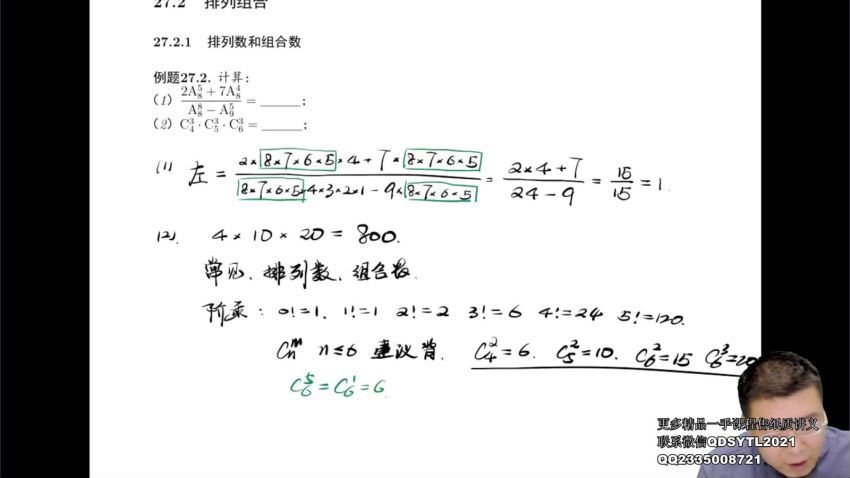 27.2 排列组合
27.2.1 排列数和组合数
例题27.2. 计算：
(1) \frac{2A_8^5 + 7A_8^4}{A_8^8 - A_9^5} = ____;
(2) C_4^3 · C_5^3 · C_6^3 = ____;
(1) 左 = \frac{2×8×7×6×5×4+7×8×7×6×5}{8×7×6×5×4×3×2×1-9×8×7×6×5} = \frac{2×4+7}{24-9} = \frac{15}{15} = 1.
(2). 4×10×20=800.
常见、排列数、组合数.
阶乘：0!=1. 1!=1 2!=2 3!=6 4!=24 5!=120.
C_n^m n≤6 建议背. C_4^2=6. C_5^2=10. C_6^2=15 C_6^3=20
C_6^5=C_6^1=6.
更多精品一手课程售纸质讲义
联系微信QDSYTL2021
QQ2335008721